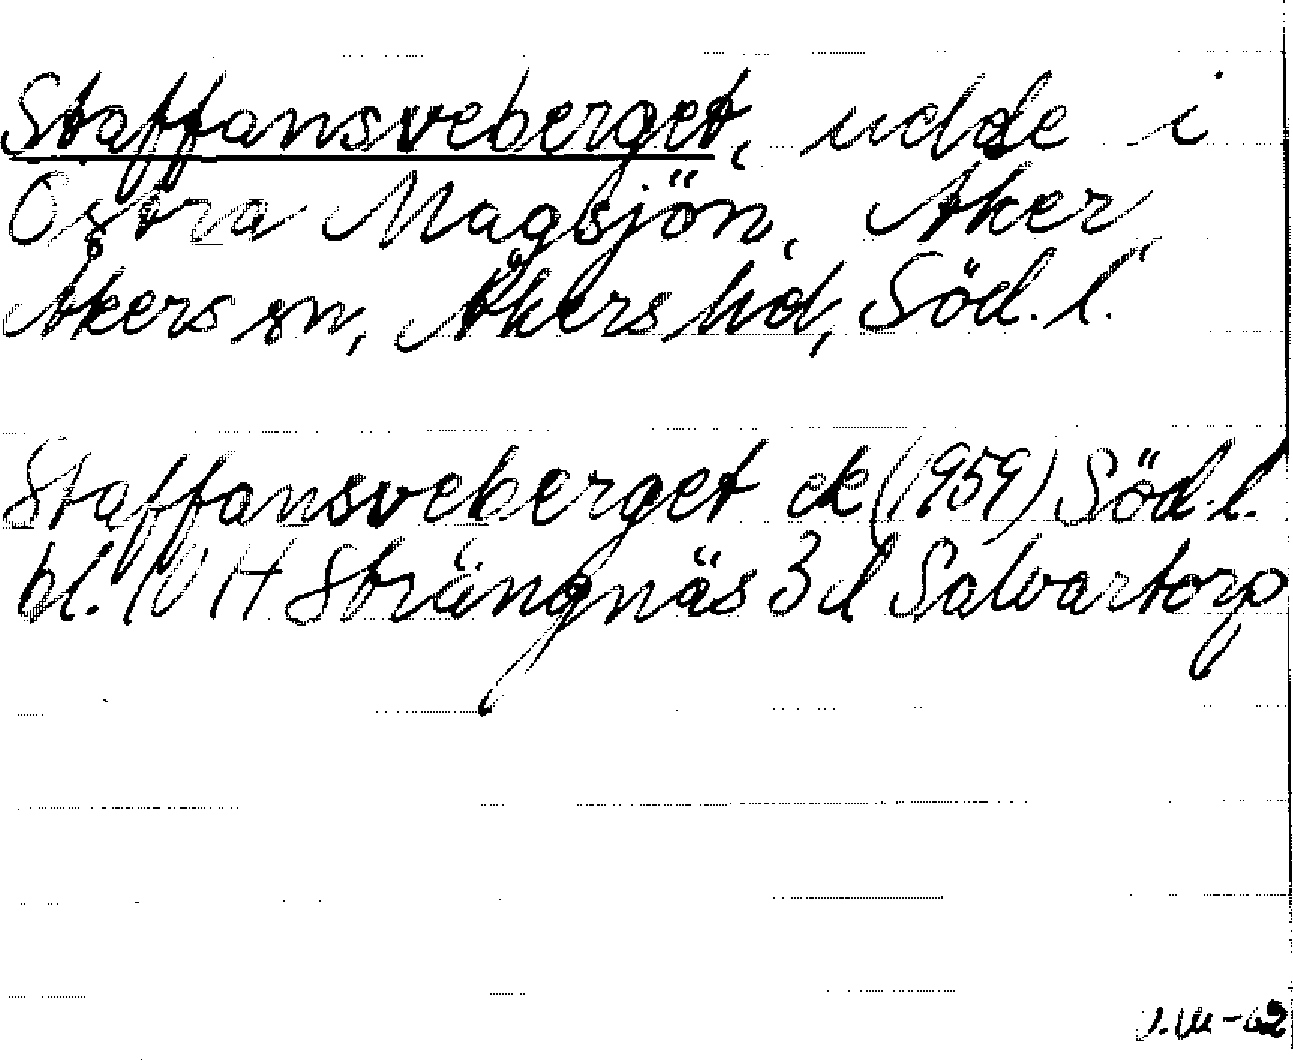 Staffansveberget, udde i
Östra Magsjön, Åker,
Åkers sn, Åkers hd, Söd.l.
Staffansveberget ek (1959) Söd.l.
bl. 10 H Strängnäs 3 d Salvartorp